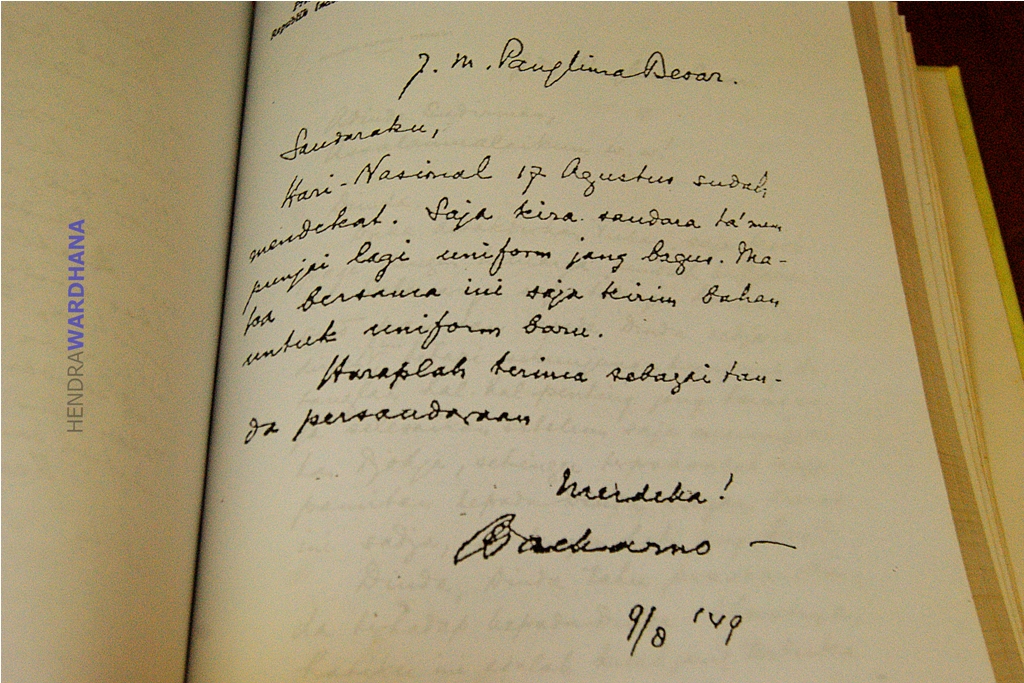 J. M. Panglima Besar.
Saudaraku,
Hari-Nasional 17 Agustus sudah
mendekat. Saja kira saudara ta' mem
punjai lagi uniform jang bagus. Ma-
ka bersama ini saja kirim bahan
untuk uniform baru.
Haraplah terima sebagai tan-
da persaudaraan
Merdeka!
Soekarno —
9/8 '49
HENDRAWARDHANA